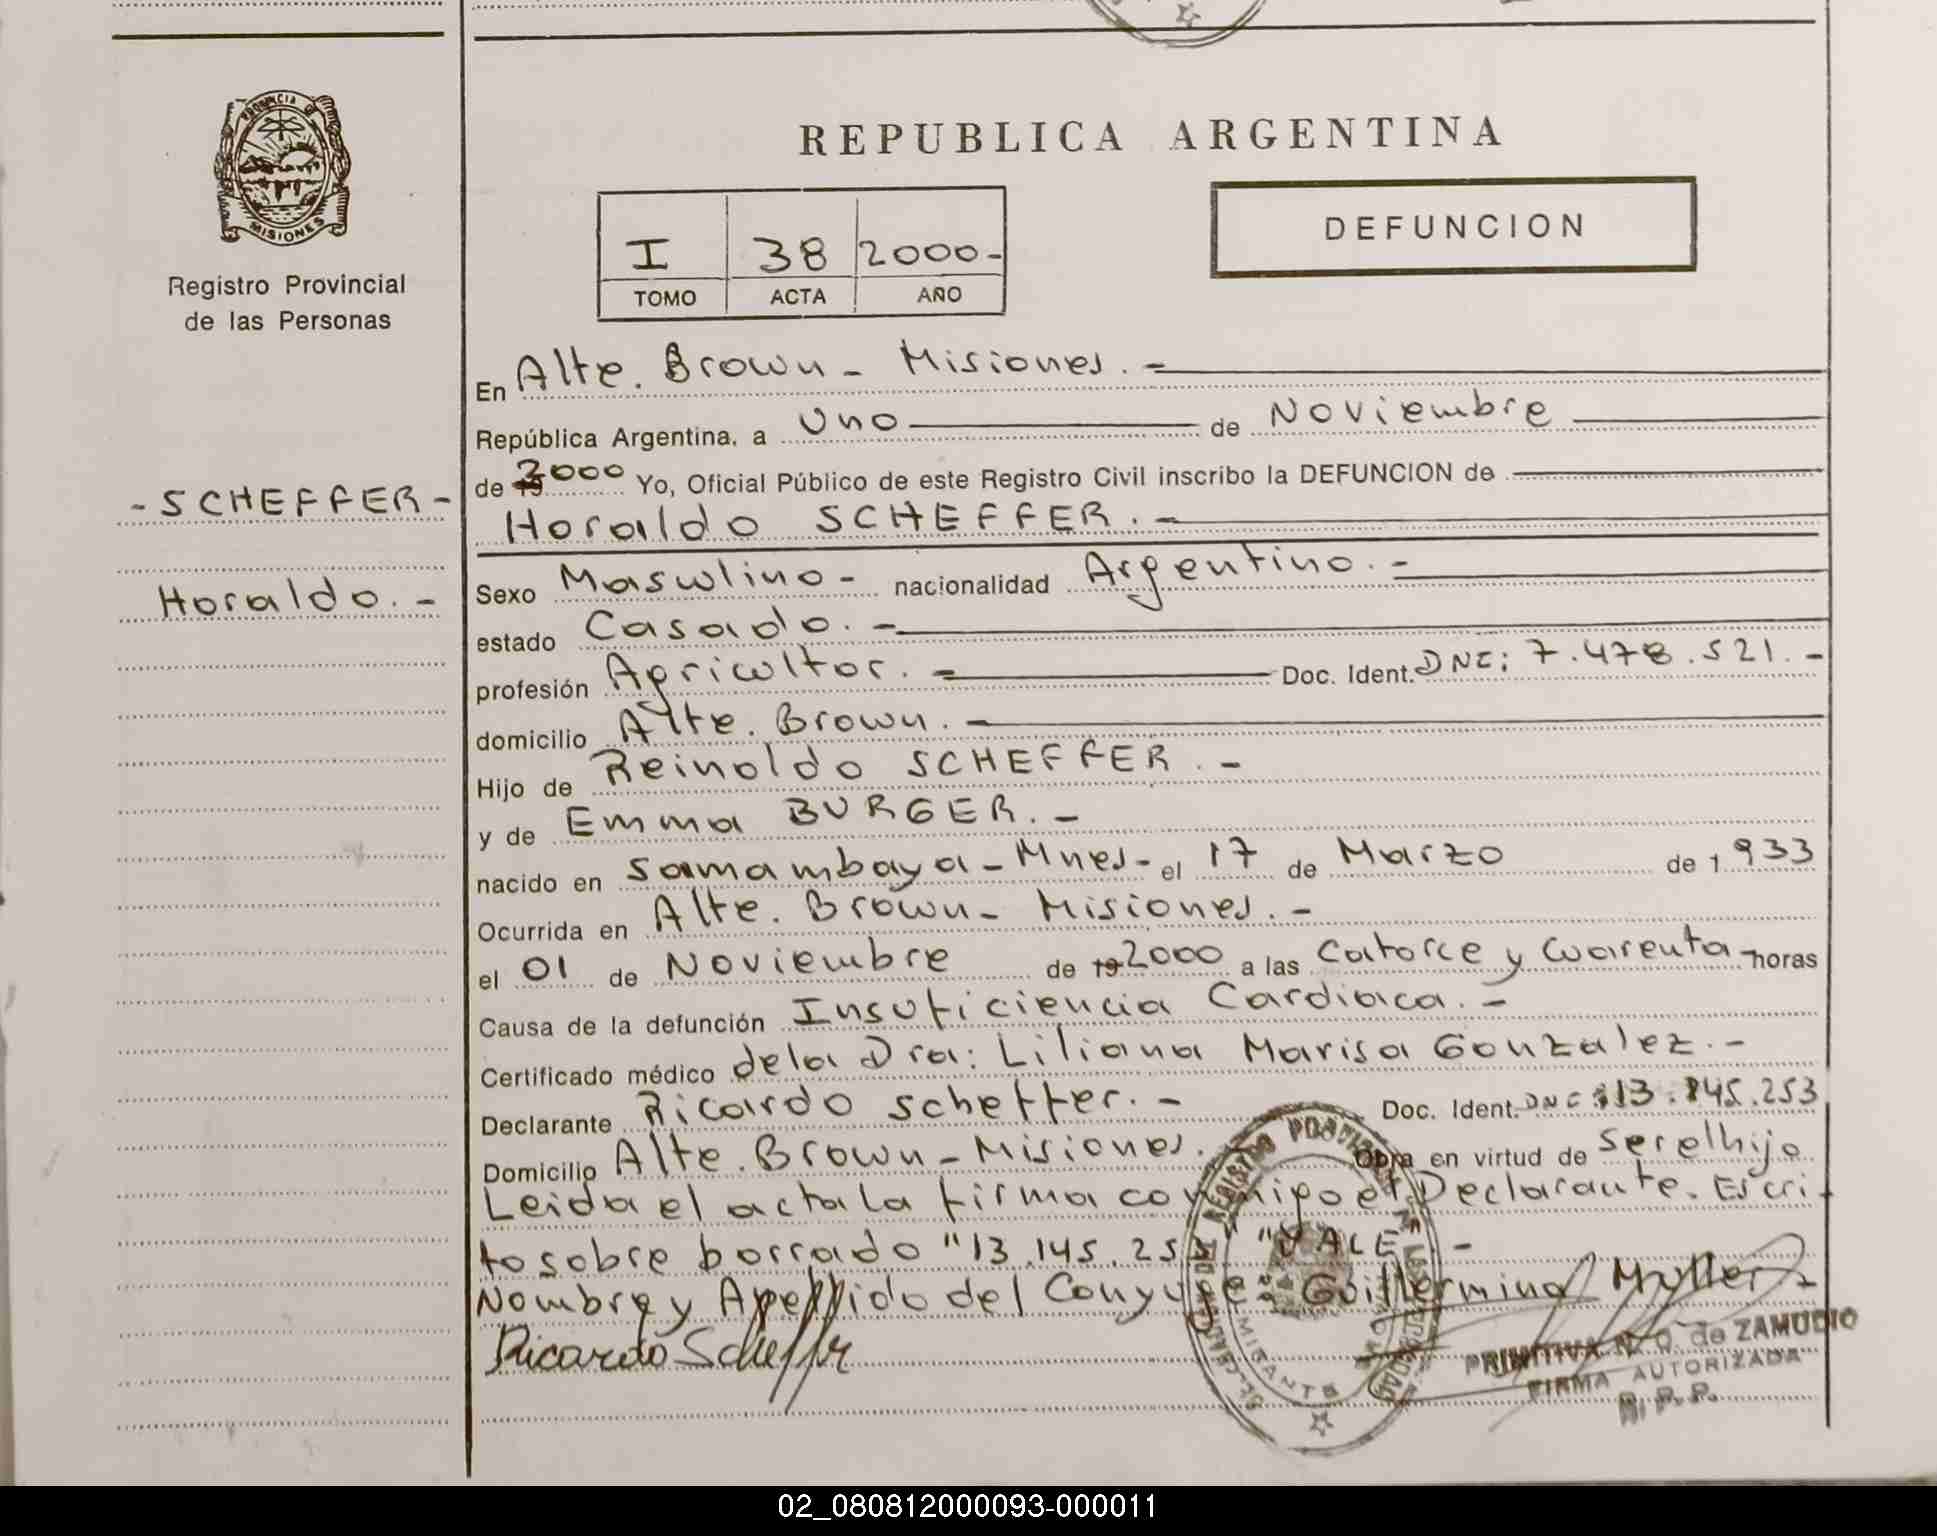 PROVINCIA DE
MISIONES
Registro Provincial
de las Personas
- SCHEFFER -
Horaldo. -
REPUBLICA ARGENTINA
I 38 2000-
TOMO ACTA AÑO
DEFUNCION
En Alte. Brown - Misiones. -
República Argentina, a Uno de Noviembre
de 2000 Yo, Oficial Público de este Registro Civil inscribo la DEFUNCION de
Horaldo SCHEFFER. -
Sexo Masculino - nacionalidad Argentino. -
estado Casado. -
profesión Agricultor. - Doc. Ident. DNI: 7.478.521. -
domicilio Alte. Brown. -
Hijo de Reinoldo SCHEFFER. -
y de Emma BURGER. -
nacido en Samambaya - Mnes - el 17 de Marzo de 1.933
Ocurrida en Alte. Brown - Misiones. -
el 01 de Noviembre de 19 2000 a las Catorce y Cuarenta - horas
Causa de la defunción Insuficiencia Cardiaca. -
Certificado médico de la Dra: Liliana Marisa Gonzalez. -
Declarante Ricardo Scheffer. - Doc. Ident. DNI: 13.145.253
Domicilio Alte. Brown - Misiones. Obra en virtud de ser el hijo
Leida el acta la firma conmigo el Declarante. Escri-
to sobre borrado "13.145.253" "VALE". -
Nombre y Apellido del Conyuge: Guillermina Myller -
Ricardo Scheffer
PRIMITIVA N. O. de ZAMUDIO
FIRMA AUTORIZADA
R. P. P.
02_080812000093-000011